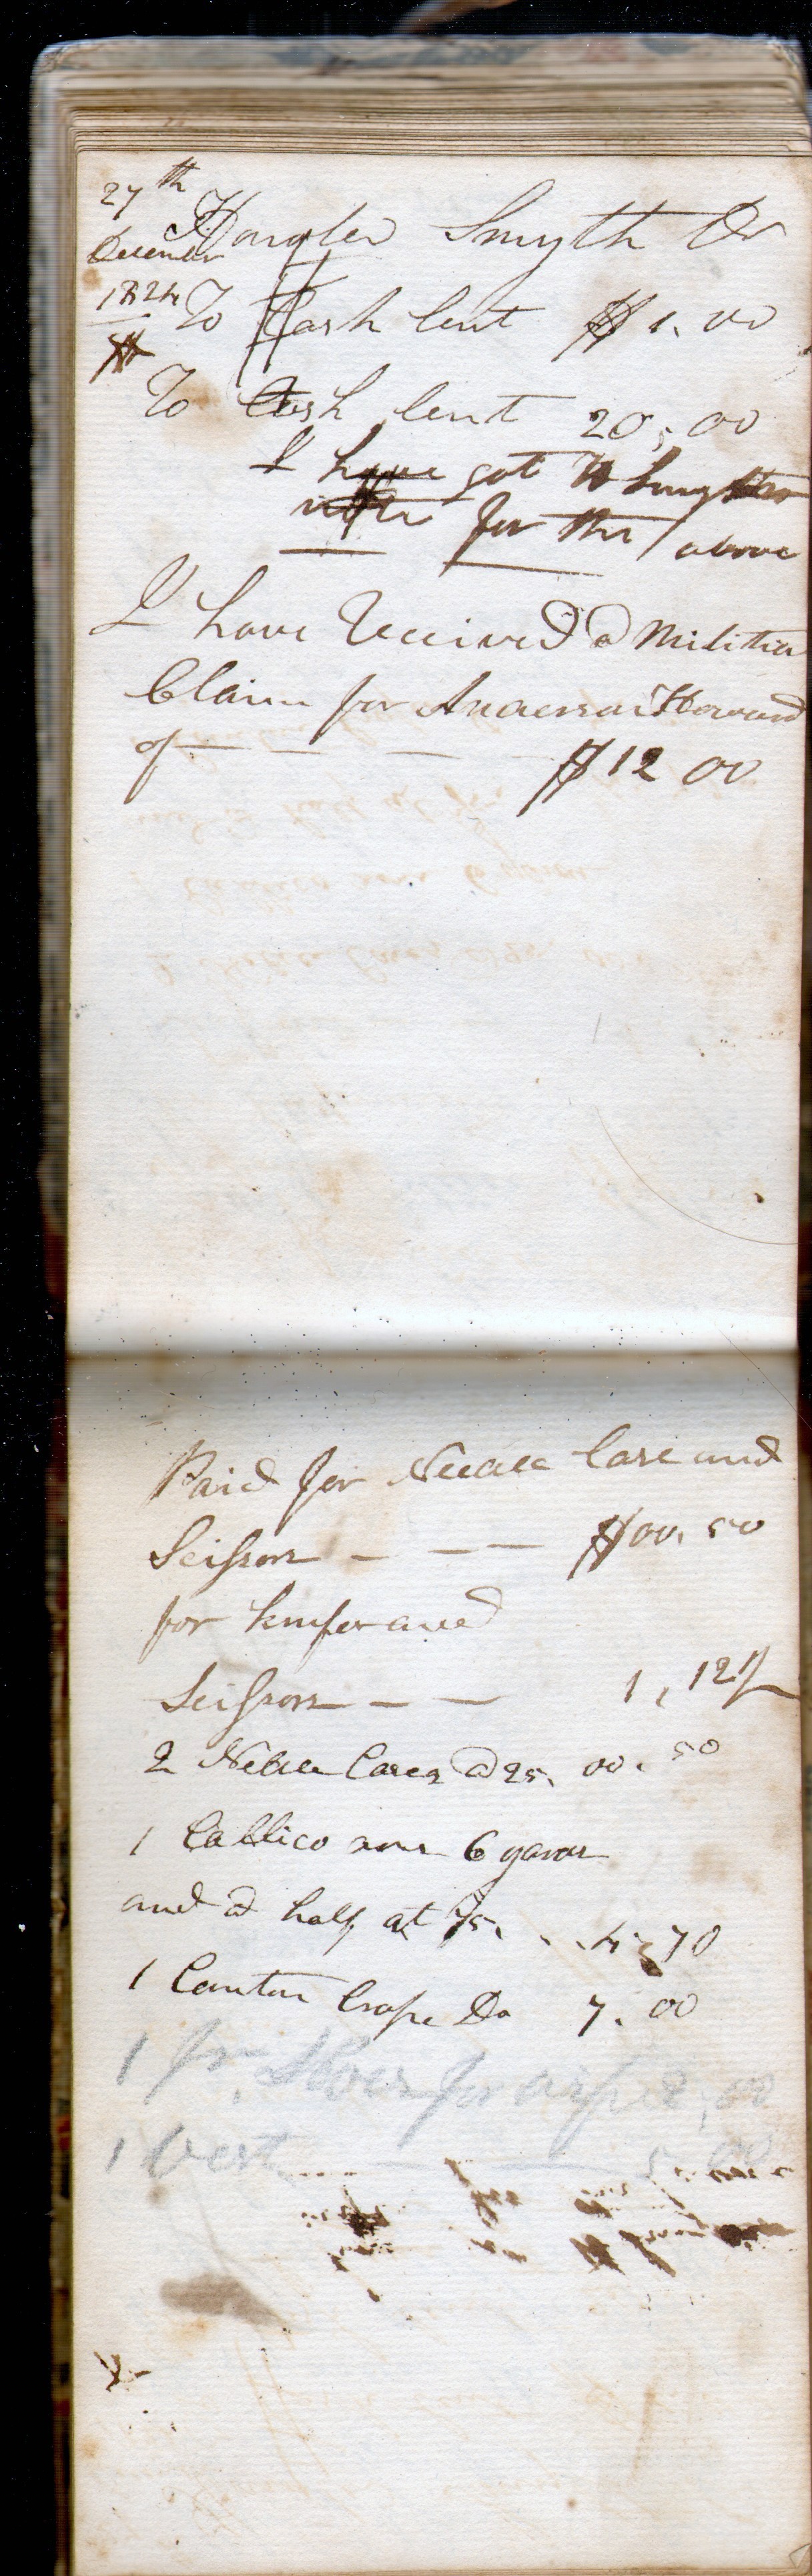 27th
December
1824
Smyth Dr
To Cash lent $1.00
To Cash lent 20,00
I have got H Smyths
note for the above
I have Received a Militia
Claim for Anderson Howard
of — — — $12 00
Paid for Needle Case and
Scissors — — — $00.50
for knifes and
Scissors — — 1,12½
2 Needle Cases @ 25. 00.50
1 Callico 6 yards
and a half at 75. . . 4.70
1 Canton Crape Do 7.00
1 pr. Shoes for 2,00
1 Vest — — 5.00